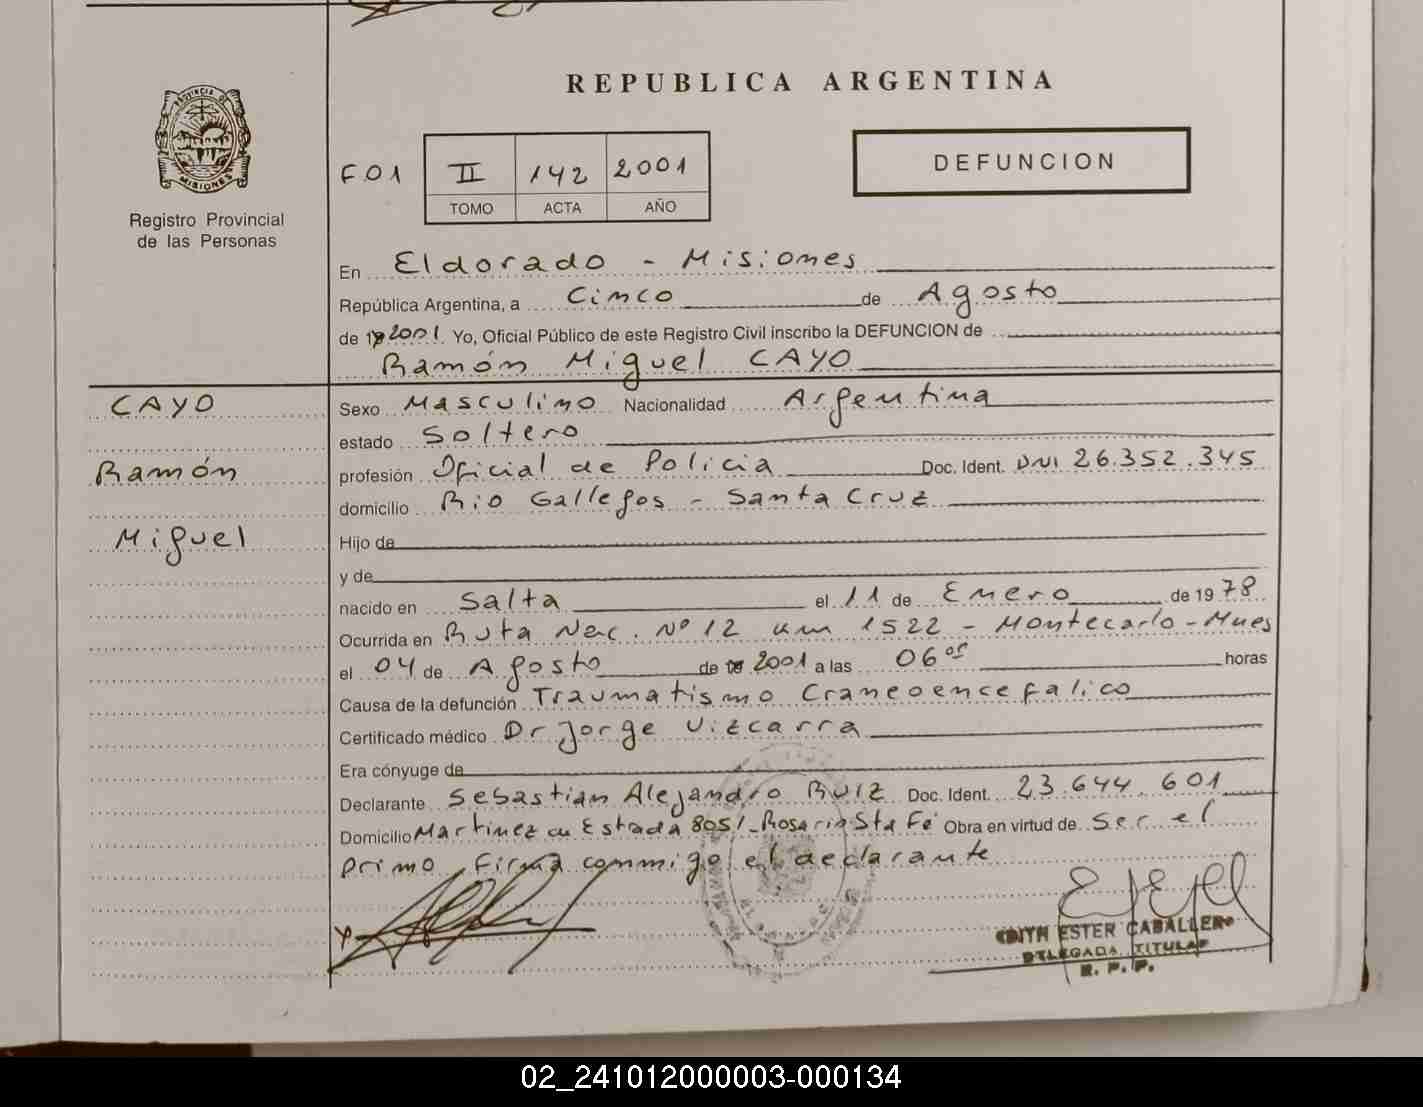 REPUBLICA ARGENTINA
PROVINCIA DE
MISIONES
Registro Provincial
de las Personas
F01 II 142 2001
TOMO ACTA AÑO
DEFUNCION
En Eldorado - Misiones
República Argentina, a Cinco de Agosto
de 19 2001. Yo, Oficial Público de este Registro Civil inscribo la DEFUNCION de
Ramón Miguel CAYO
CAYO
Ramón
Miguel
Sexo Masculino Nacionalidad Argentina
estado Soltero
profesión Oficial de Policia Doc. Ident. DNI 26.352.345
domicilio Rio Gallegos - Santa Cruz
Hijo de
y de
nacido en Salta el 11 de Enero de 1978
Ocurrida en Ruta Nac. Nº 12 km 1522 - Montecarlo - Mnes
el 04 de Agosto de 2001 a las 06 05 horas
Causa de la defunción Traumatismo Craneoencefalico
Certificado médico Dr Jorge Vizcarra
Era cónyuge de
Declarante Sebastian Alejandro Ruiz Doc. Ident. 23.644.601
Domicilio Martinez de Estrada 8051 - Rosario Sta Fé Obra en virtud de Ser el
primo Firma conmigo el declarante
EDITH ESTER CABALLERO
DELEGADA TITULAR
R. P. P.
02_241012000003-000134